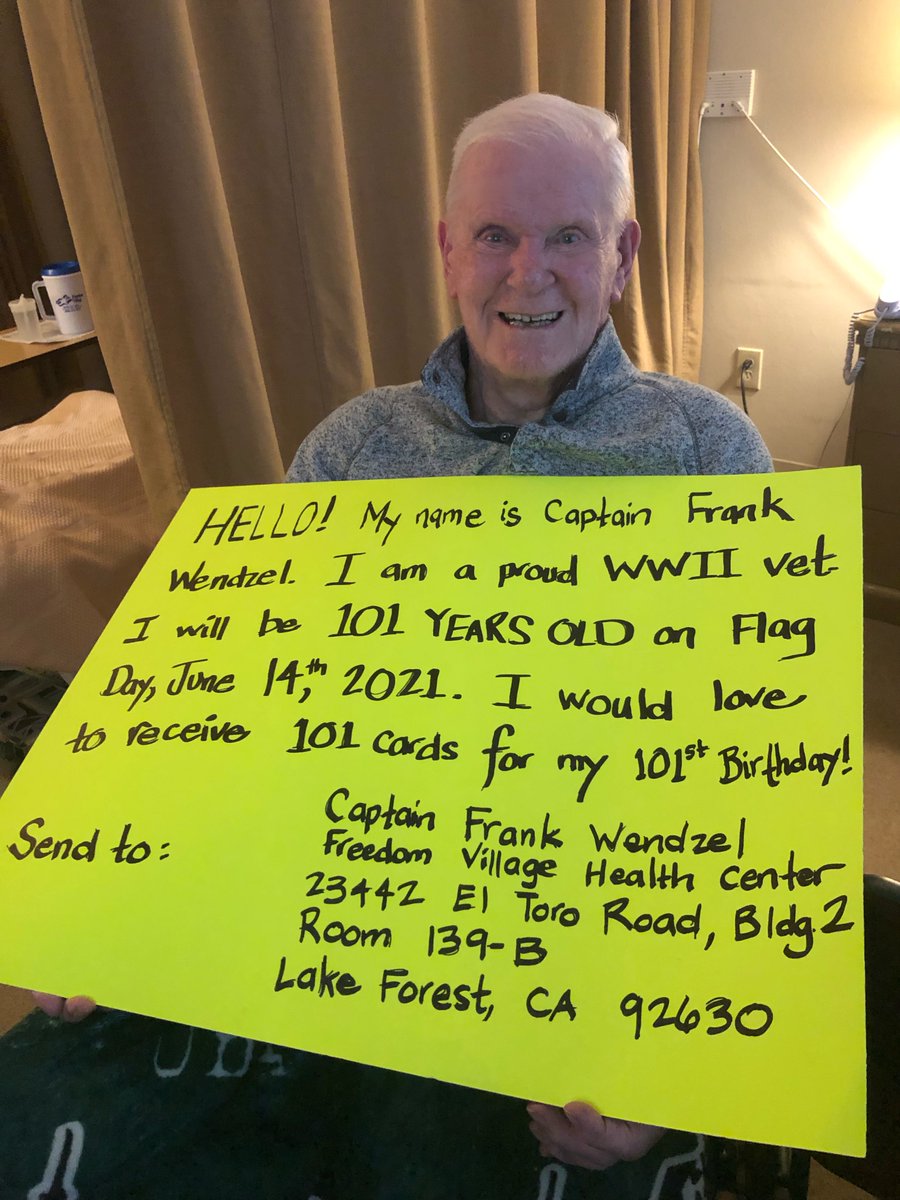 HELLO! My name is Captain Frank
Wendzel. I am a proud WWII vet.
I will be 101 YEARS OLD on Flag
Day, June 14,th 2021. I would love
to receive 101 cards for my 101st Birthday!
Send to:
Captain Frank Wendzel
Freedom Village Health Center
23442 El Toro Road, Bldg.2
Room 139-B
Lake Forest, CA 92630